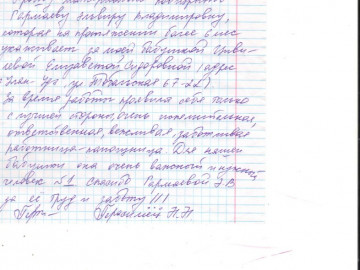 Гармаеву Эльвиру Владимировну,
которая на протяжении более 6 лет
ухаживает за моей бабушкой
Елизаветой Сидоровной (адрес
Улан-Удэ ул 67-22)
За время работы проявила себя только
с лучшей стороны, очень
ответственная, вежливая, заботливая
работница-помощница Для нашей
бабушки она очень важный и нужный
человек №1 Спасибо Гармаевой Э.В
за ее труд и заботу!!!